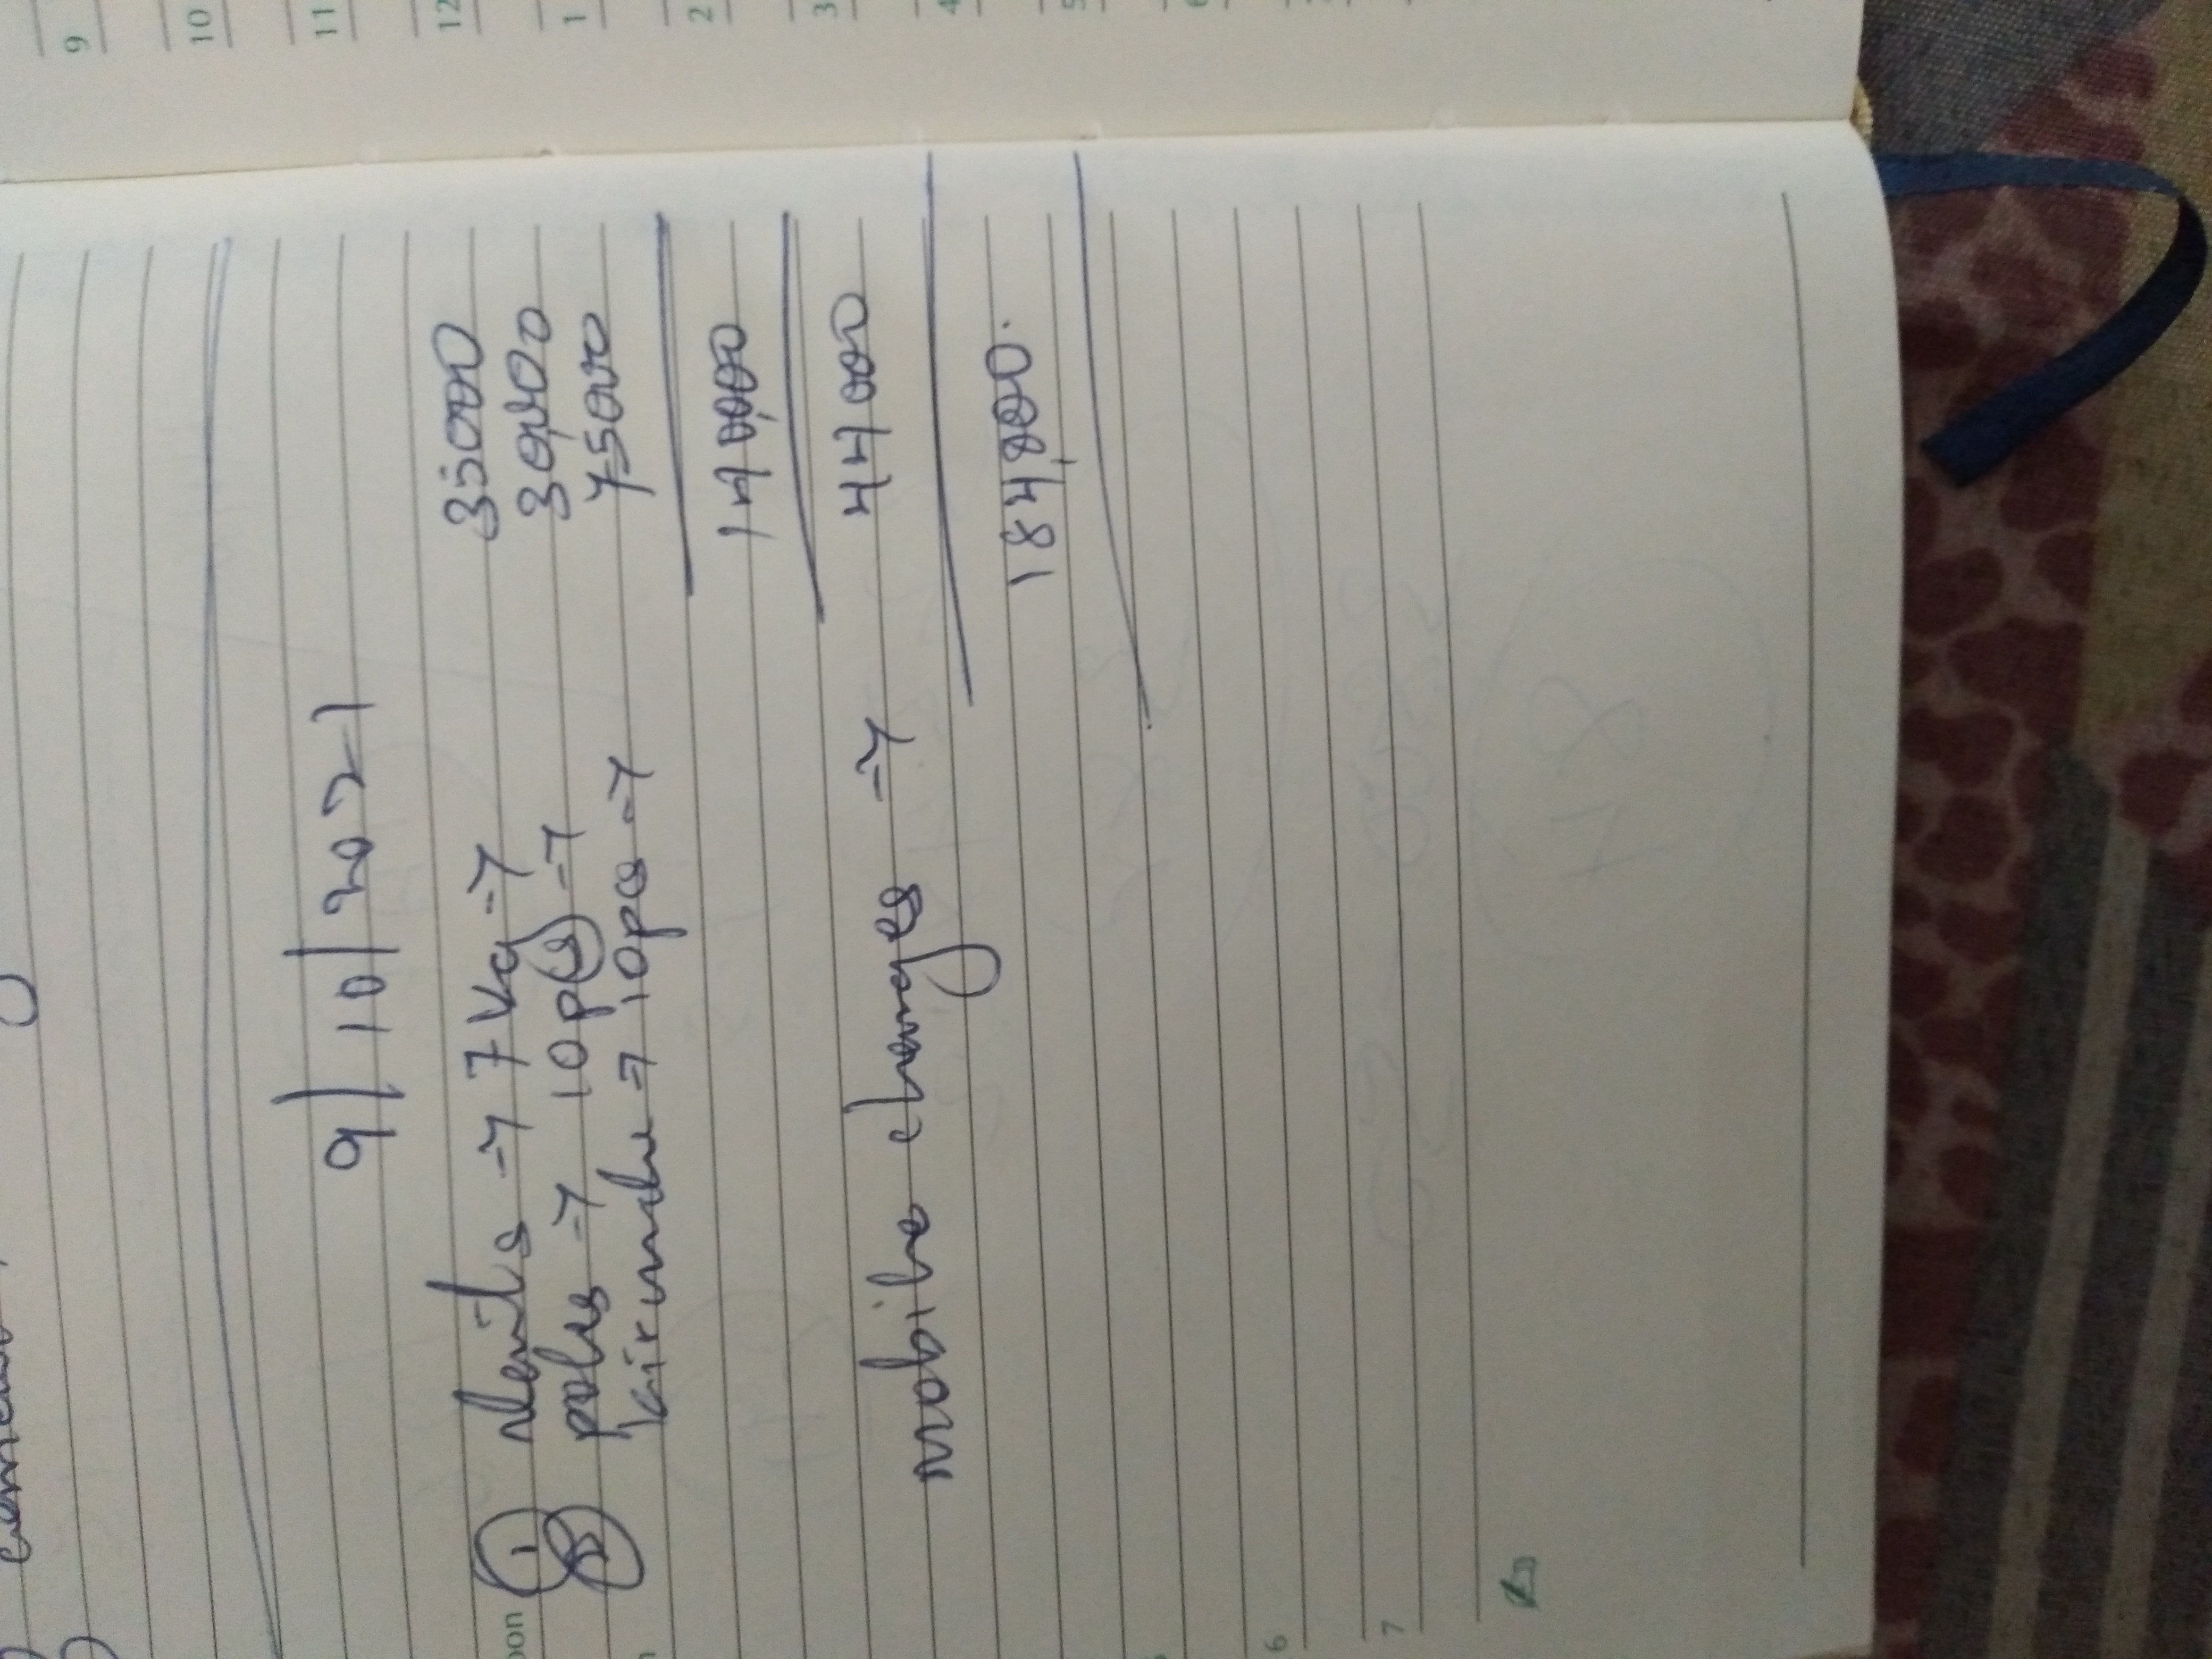 9/10/2021
① Nails → 7 Kg → 35000
② poles → 10pcs → 30,000
kirundu → 10pcs → 75000
140,000
mobile charges → 44000
184,000.
9
10
11
12
1
2
3
4
5
6
7